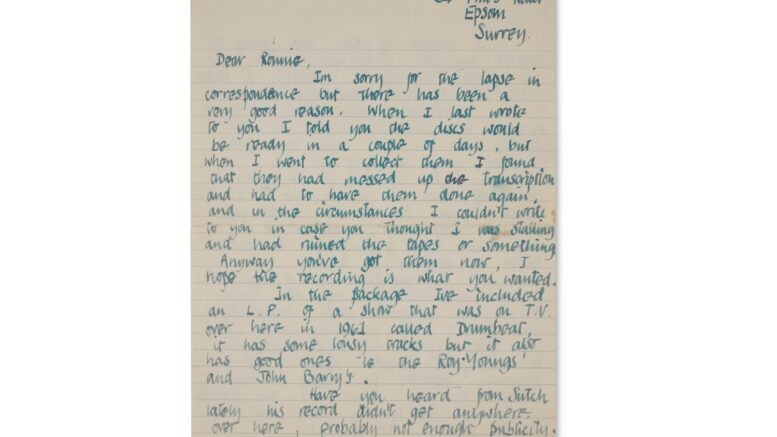 Epsom
Surrey.
Dear Ronnie,
Im sorry for the lapse in
correspondence but there has been a
very good reason. When I last wrote
to you I told you the discs would
be ready in a couple of days, but
when I went to collect them I found
that they had messed up the transcription
and had to have them done again.
and in the circumstances I couldn't write
to you in case you thought I was stalling
and had ruined the tapes or something
Anyway you've got them now, I
hope the recording is what you wanted.
In the package Ive included
an L.P. of a show that was on T.V.
over here in 1961 called Drumbeat,
it has some lousy tracks but it also
has good ones ie the Roy Youngs
and John Barry's.
Have you heard from Sutch
lately his record didn't get anywhere
over here, probably not enough publicity.